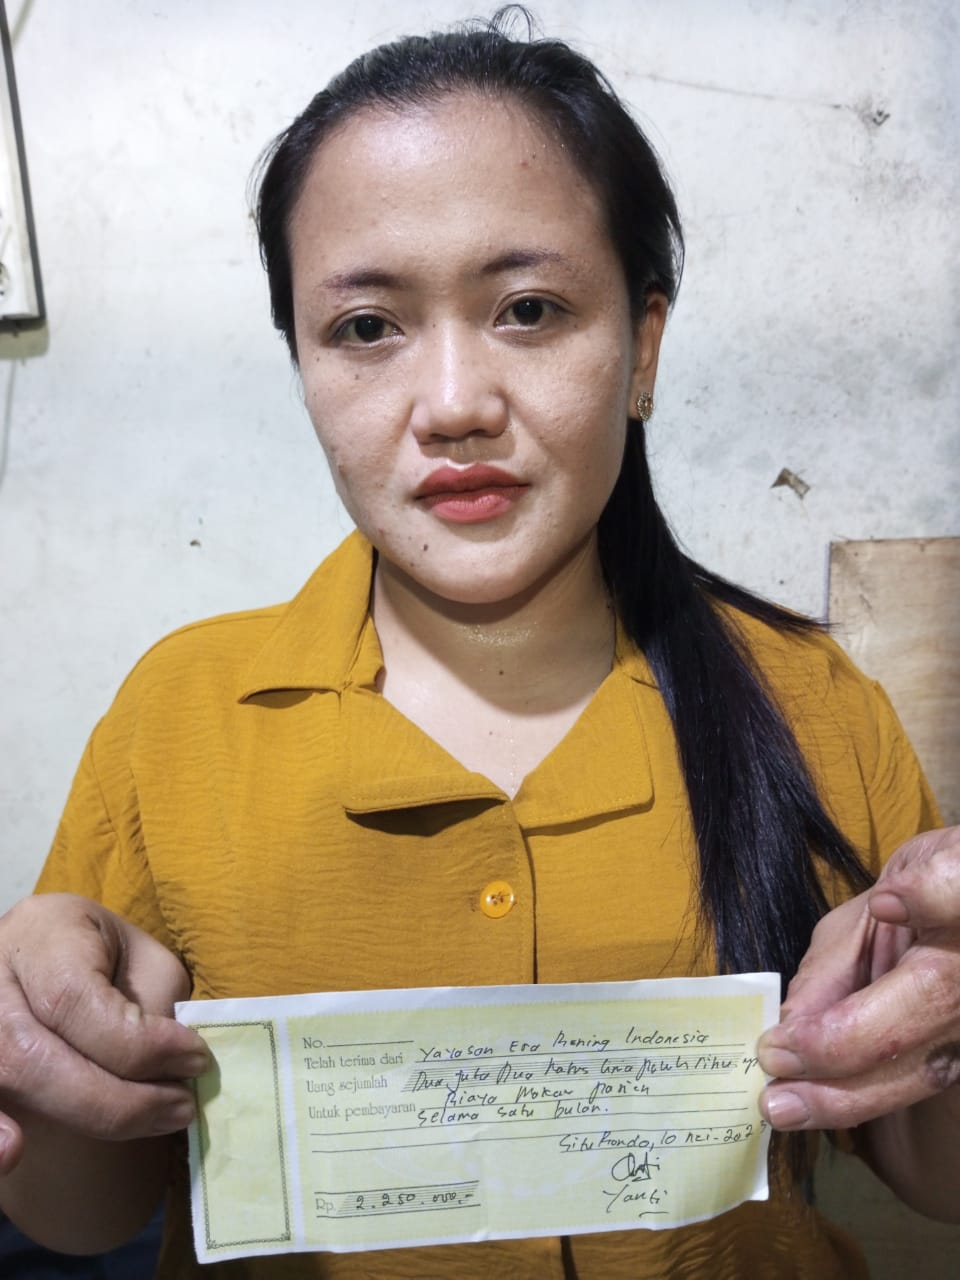 No.
Telah terima dari Yayasan Era Bening Indonesia
Uang sejumlah Dua juta Dua Ratus Lima Puluh ribu rp
Untuk pembayaran Biaya Makan Pasien
Selama Satu bulan.
Situbondo, 10 Mei - 202
Yanti
Rp. 2.250.000,-